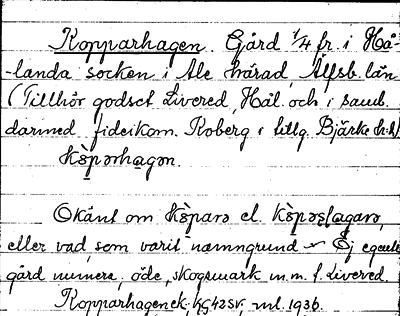 Kopparhagen. Gård 1/4 fr. i Hå-
-landa socken i Ale härad, Älfsb. län
(Tillhör godset Livered, Hål. och i samb.
darmed fideikom. Koberg i tillg. Bjärke h-d)
Kòpərhagən.
Okänt om Kòparə el.
eller vad som varit namngrund - Ej egentl.
gård numera, öde, skogsmark m.m. f. Livered.
Kopparhagen ek. KG42SV, ml. 1936.